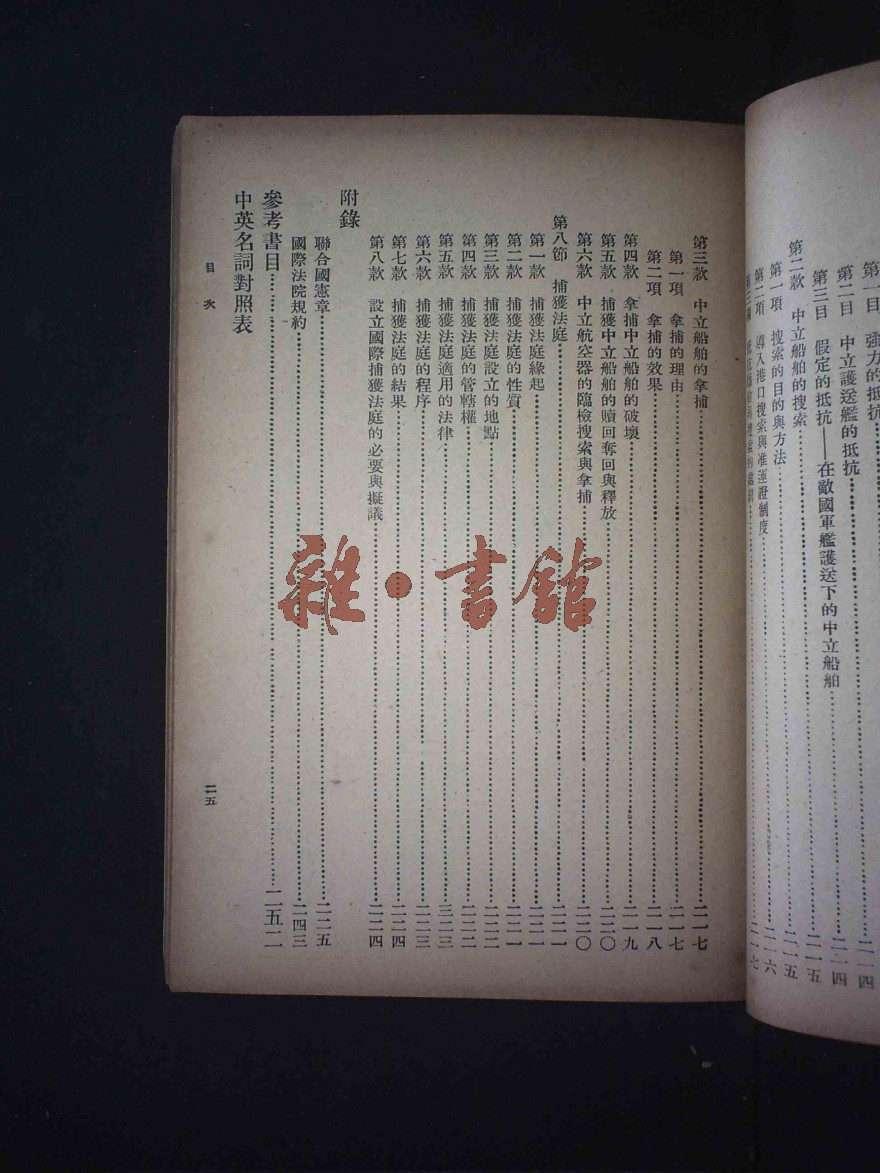 第一目 強力的抵抗……二一四
第二目 中立護送艦的抵抗……二一四
第三目 假定的抵抗——在敵國軍艦護送下的中立船舶……二一五
第二款 中立船舶的搜索……二一五
第一項 搜索的目的與方法……二一六
第二項 導入港口搜索與准運證制度……二一七
第三款 中立船舶的拿捕……二一七
第一項 拿捕的理由……二一七
第二項 拿捕的效果……二一八
第四款 拿捕中立船舶的破壞……二一九
第五款 捕獲中立船舶的贖回奪回與釋放……二二〇
第六款 中立航空器的臨檢搜索與拿捕……二二〇
第八節 捕獲法庭……二二一
第一款 捕獲法庭緣起……二二一
第二款 捕獲法庭的性質……二二一
第三款 捕獲法庭設立的地點……二二二
第四款 捕獲法庭的管轄權……二二二
第五款 捕獲法庭適用的法律……三二三
第六款 捕獲法庭的程序……二二三
第七款 捕獲法庭的結果……二二四
第八款 設立國際捕獲法庭的必要與擬議……二二四
附錄
聯合國憲章……二二五
國際法院規約……二四三
參考書目……二五二
中英名詞對照表
目次
二五
雜·書館